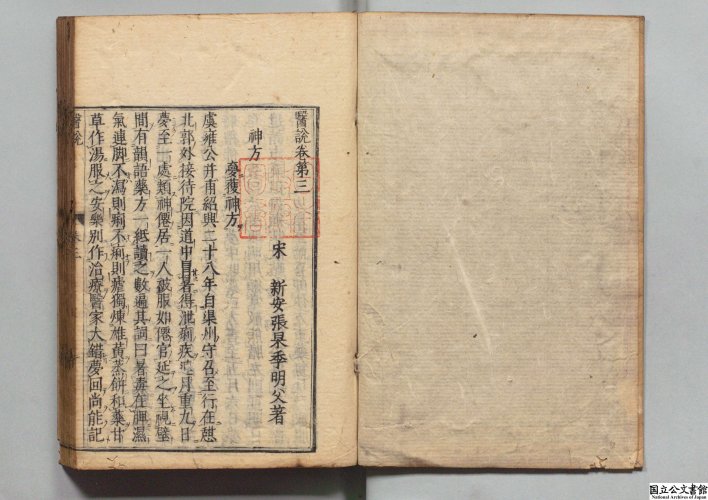 醫說卷第三
宋 新安張杲季明父著
神方
夢獲神方
虞雍公井甫紹興二十八年自渠州守召至行在憇
北郭外接待院因道中冒暑得泄痢疾連月重九日
夢至一處類神僊居一人被服如僊官延之坐視壁
間有韻語藥方一紙讀之數遍其詞曰暑毒在脾濕
氣連脚不瀉則痢不痢則瘧獨煉雄黃蒸餅和藥甘
草作湯服之安樂别作治療醫家大錯夢回尚能記
醫說
卷三
国立公文書館
National Archives of Japan